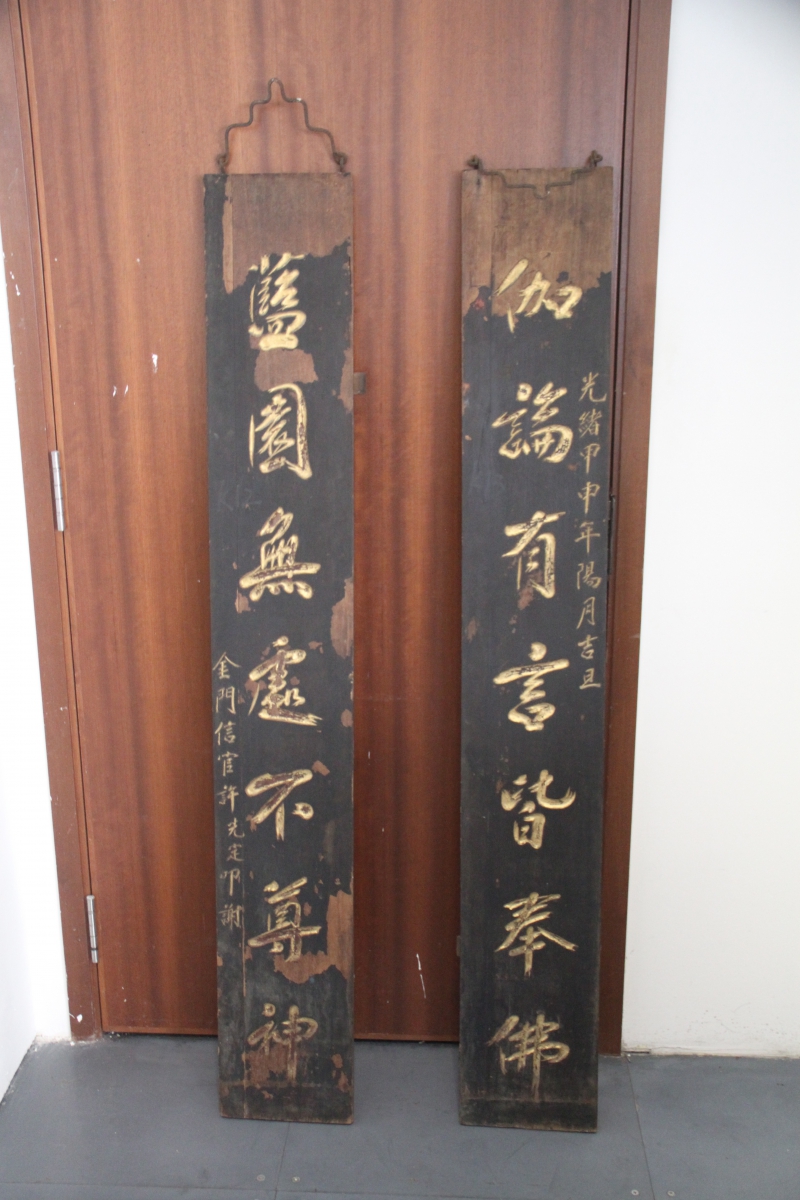 光緒甲申年陽月吉旦
伽論有言皆奉佛
藍園無處不尊神
金門信官許先定叩謝